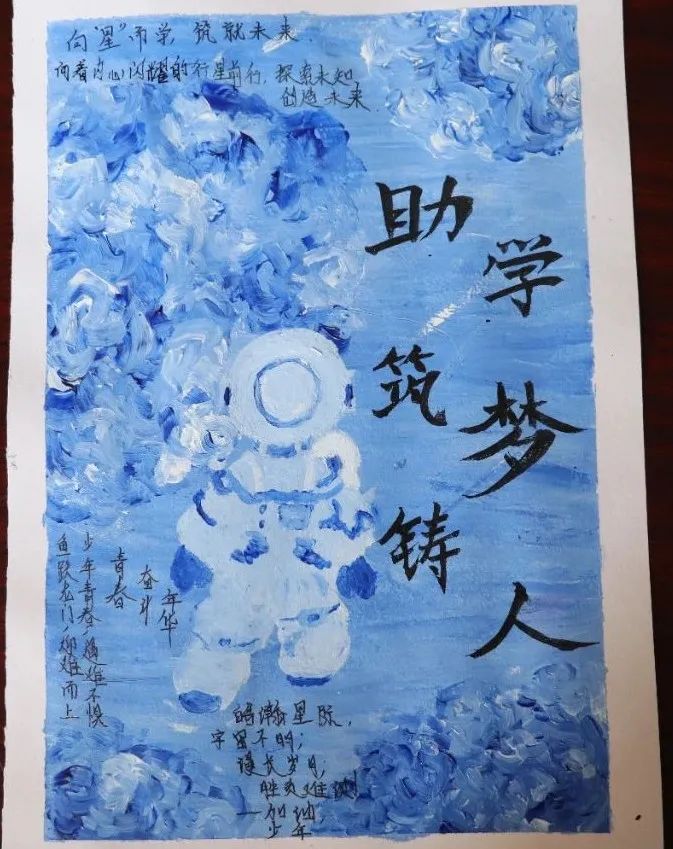 向“星”而学，筑就未来.
向着内心闪耀的行星前行，探索未知，
创造未来.
助学
筑梦
铸人
青春
奋斗
年华
少年青春，遇难不惧
鱼跃龙门，迎难而上
瀚星际，
宇宙不明；
漫长岁月，
胜负难
——加油，
少年